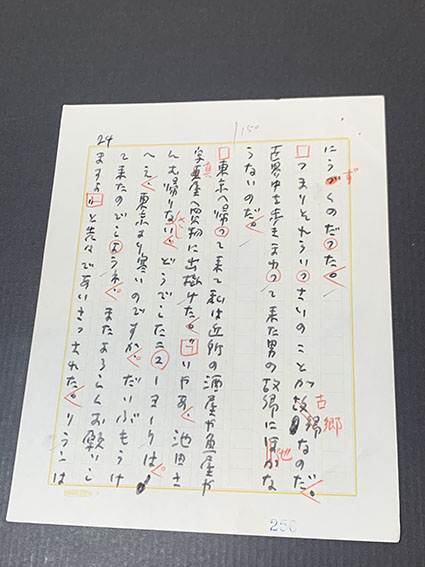 24
150
にうづくのだった。
ず
つまりそれらいっさいのことが故郷なのだ。
古郷
世界中を歩きまわって来た男の故郷にほかな
他
らないのだ。
東京へ帰って来て私は近所の酒屋や魚屋や
写真屋へ買物に出掛けた。「いやあ、池田さ
真
んお帰りなさい、どうでしたニューヨークは。
へえ、東京より寒いのですか。だいぶもうけ
て来たのでしょうね。またよろしくお願いし
ますよ」と先々であいさつされた。
250